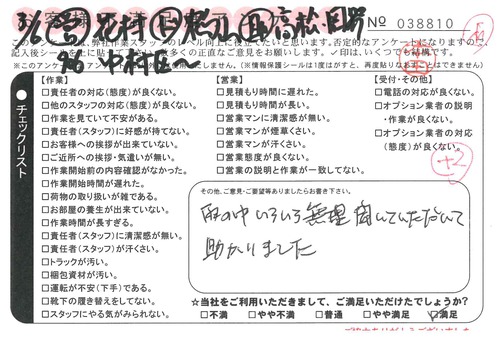 3/6
No 038810
記入後シールを上に貼って
数多くの正直なご意見をお願いします。〆印は、いくつでも結構です。
中村区へ
(※情報保護シールは1度はがすと、再度貼りなお
チェックリスト
【作業】
□責任者の対応(態度)が良くない。
□他のスタッフの対応(態度)が良くない。
□作業を見ていて不安がある。
□責任者(スタッフ)に好感が持てない。
□お客様への挨拶が出来ていない。
□ご近所への挨拶・気遣いが無い。
□作業開始前の内容確認がなかった。
□作業開始時間が遅れた。
□荷物の取り扱いが雑である。
□お部屋の養生が出来ていない。
□作業時間が長すぎる。
□責任者(スタッフ)に清潔感が無い。
□責任者(スタッフ)が汗くさい。
□トラックが汚い。
□梱包資材が汚い。
□運転が不安(下手)である。
□靴下の履き替えをしてない。
□スタッフにやる気がみられない。
【営業】
□見積もり時間に遅れた。
□見積もり時間が長い。
□営業マンに清潔感が無い。
□営業マンが煙草くさい。
□営業マンが汗くさい。
□営業態度が良くない。
□営業の説明と作業が一致してない。
【受付・その他】
□電話の対応が良くない。
□オプション業者の説明
・作業が良くない。
□オプション業者の対応
(態度)が良くない。
+2
その他、ご意見・ご要望等ありましたらお書き下さい。
雨の中いろいろ無理聞いていただいて
助かりました
☆当社をご利用いただきまして、ご満足いただけたでしょうか?
□不満 □やや不満 □普通 □やや満足 ☑満足